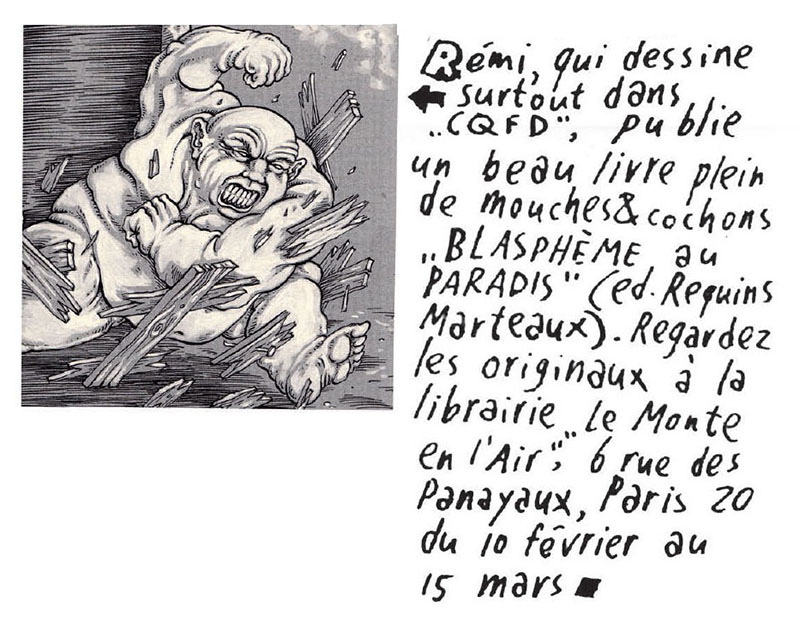 Rémi, qui dessine
← surtout dans
„CQFD", publie
un beau livre plein
de mouches&cochons
„BLASPHÈME au
PARADIS" (ed. Requins
Marteaux). Regardez
les originaux à la
librairie „le Monte
en l'Air", 6 rue des
Panayaux, Paris 20
du 10 février au
15 mars ■